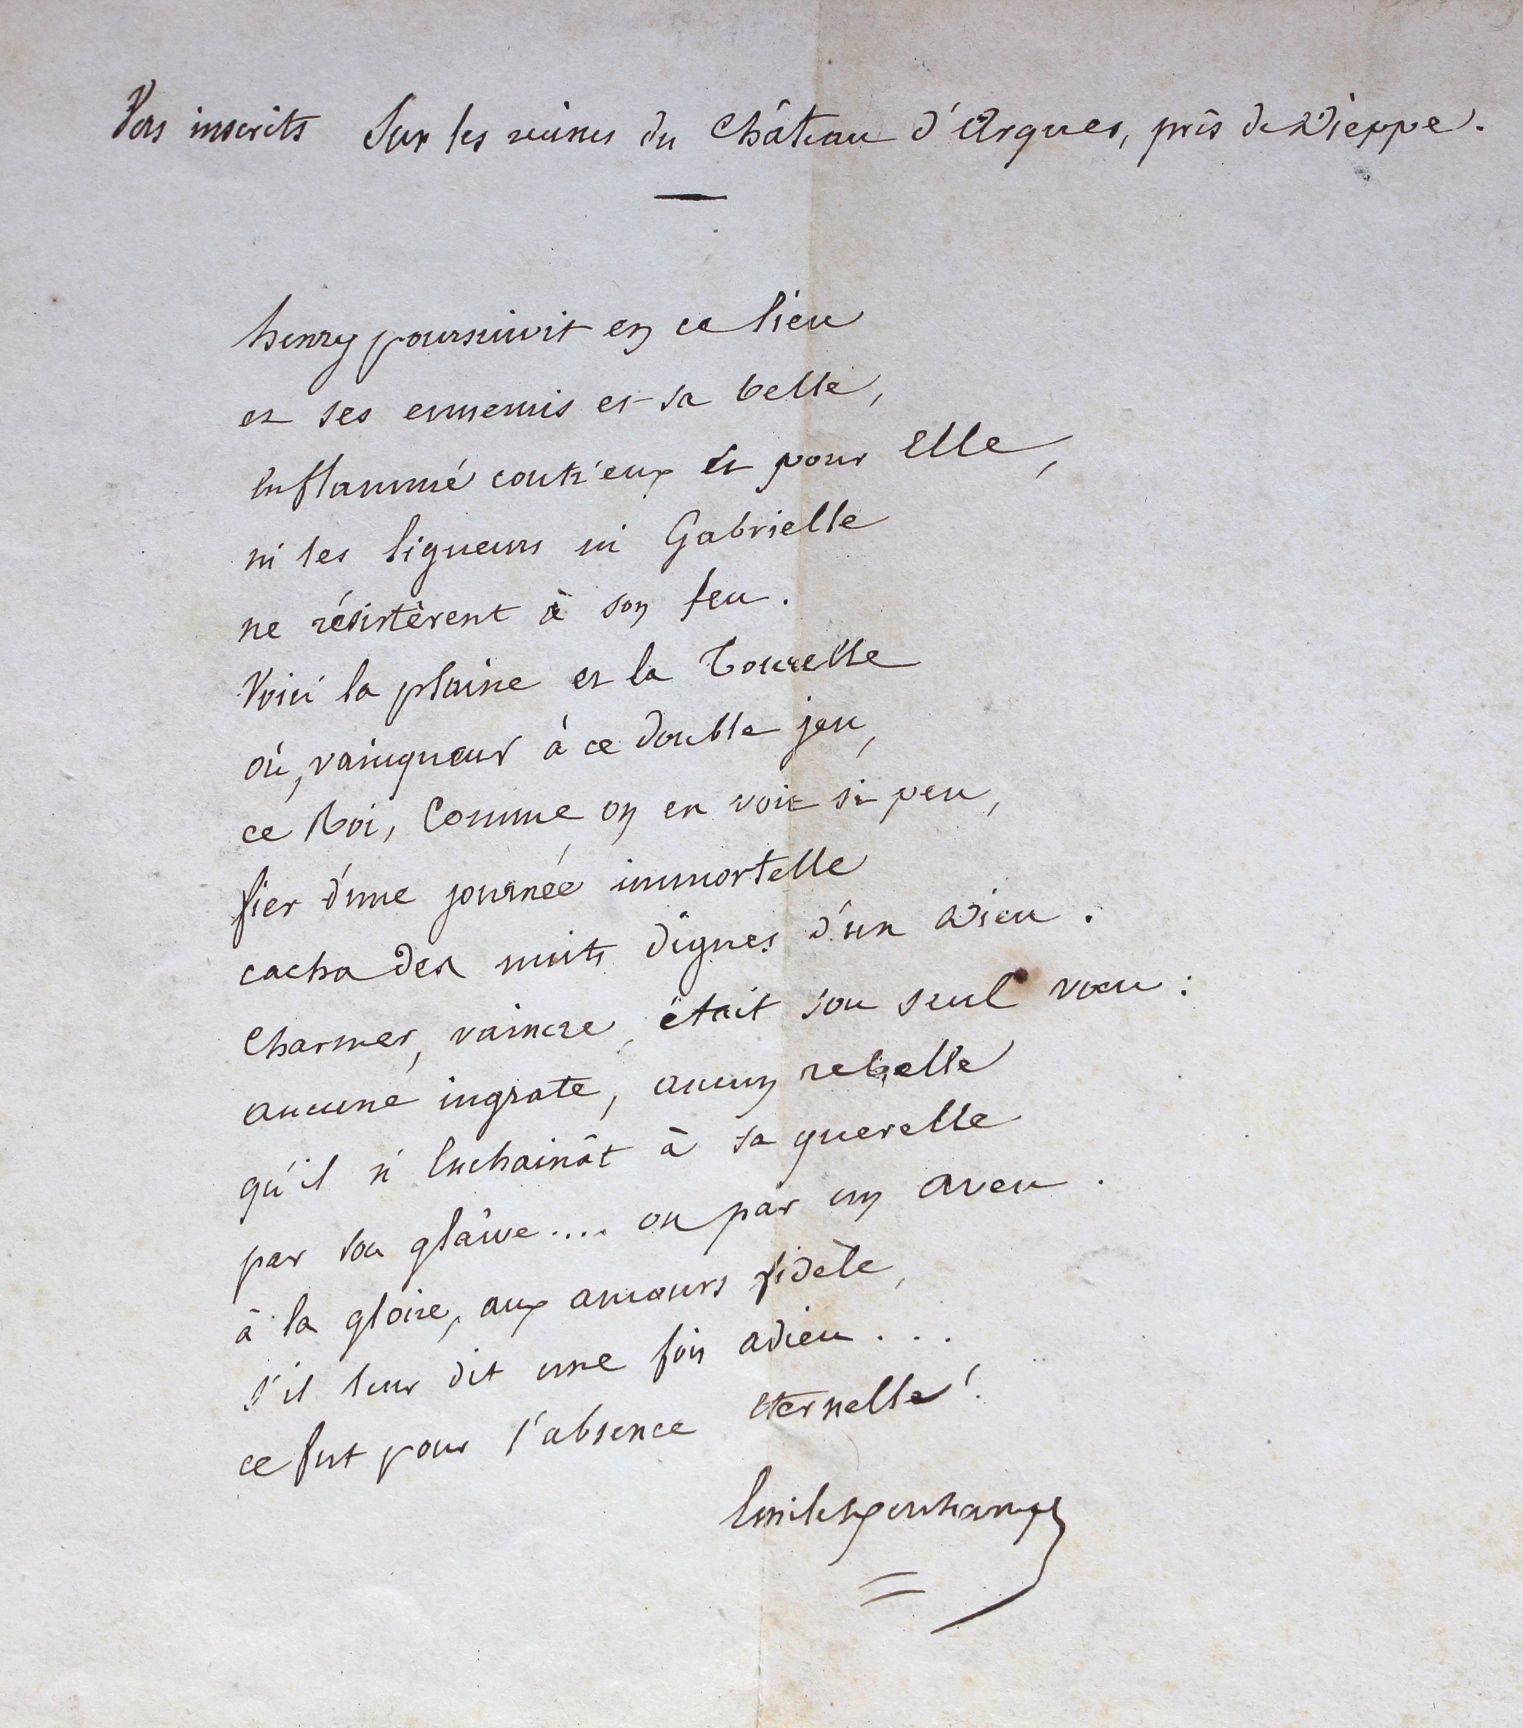 Vers inscrits sur les ruines du Château d'Arques, près de Dieppe.
henry poursuivit en ce lieu
et ses ennemis et sa belle,
enflammé contr'eux et pour elle,
ni les ligueurs ni Gabrielle
ne résistèrent à son feu.
Voici la plaine et la Tourelle
où, vainqueur à ce double jeu,
ce Roi, comme on en voit si peu,
fier d'une journée immortelle
cacha des nuits dignes d'un Dieu.
Charmer, vaincre, était son seul vœu :
aucune ingrate, aucun rebelle
qu'il n'enchainât à sa querelle
par son glaive.... ou par un aveu.
à la gloire, aux amours fidèle,
s'il leur dit une fois adieu...
ce fut pour l'absence éternelle !
Emile Deschamps